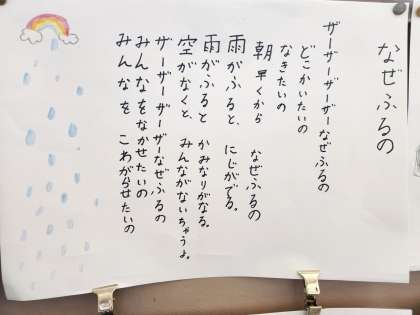 なぜふるの
ザーザーザーザーなぜふるの
どこかいたいの
なきたいの
朝早くから なぜふるの
雨がふると、 にじがでる。
雨がふると かみなりがなる。
空がなくと、 みんながないちゃうよ。
ザーザーザーザーなぜふるの
みんなをなかせたいの
みんなを こわがらせたいの